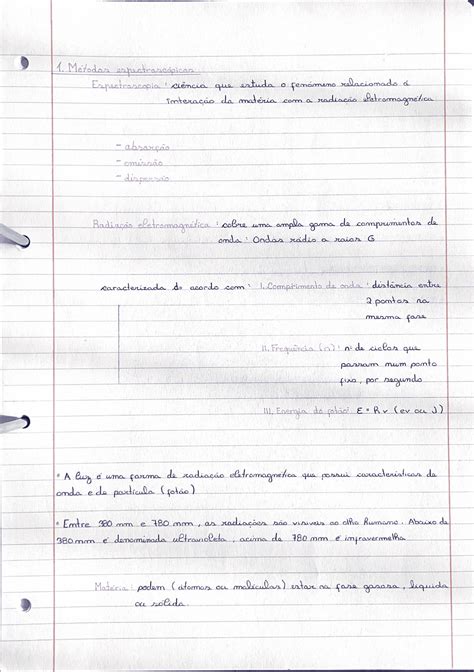 1. Métodos espectroscópicos
Espectroscopia : ciência que estuda o fenómeno relacionado à
interação da matéria com a radiação eletromagnética
- absorção
- emissão
- dispersão
Radiação eletromagnética : cobre uma ampla gama de comprimentos de
onda : Ondas rádio a raios G
caracterizada de acordo com : I. Comprimento de onda : distância entre
2 pontos na
mesma fase
II. Frequência (n) : nº de ciclos que
passam num ponto
fixo, por segundo
III. Energia do fotão : E = Rv (ev ou J)
* A luz é uma forma de radiação eletromagnética que possui características de
onda e de partícula (fotão)
* Entre 380 nm e 780 nm, as radiações são visíveis ao olho humano. Abaixo de
380 nm é denominada ultravioleta, acima de 780 nm é infravermelha
Matéria : podem (átomos ou moléculas) estar na fase gasosa, líquida
ou sólida.